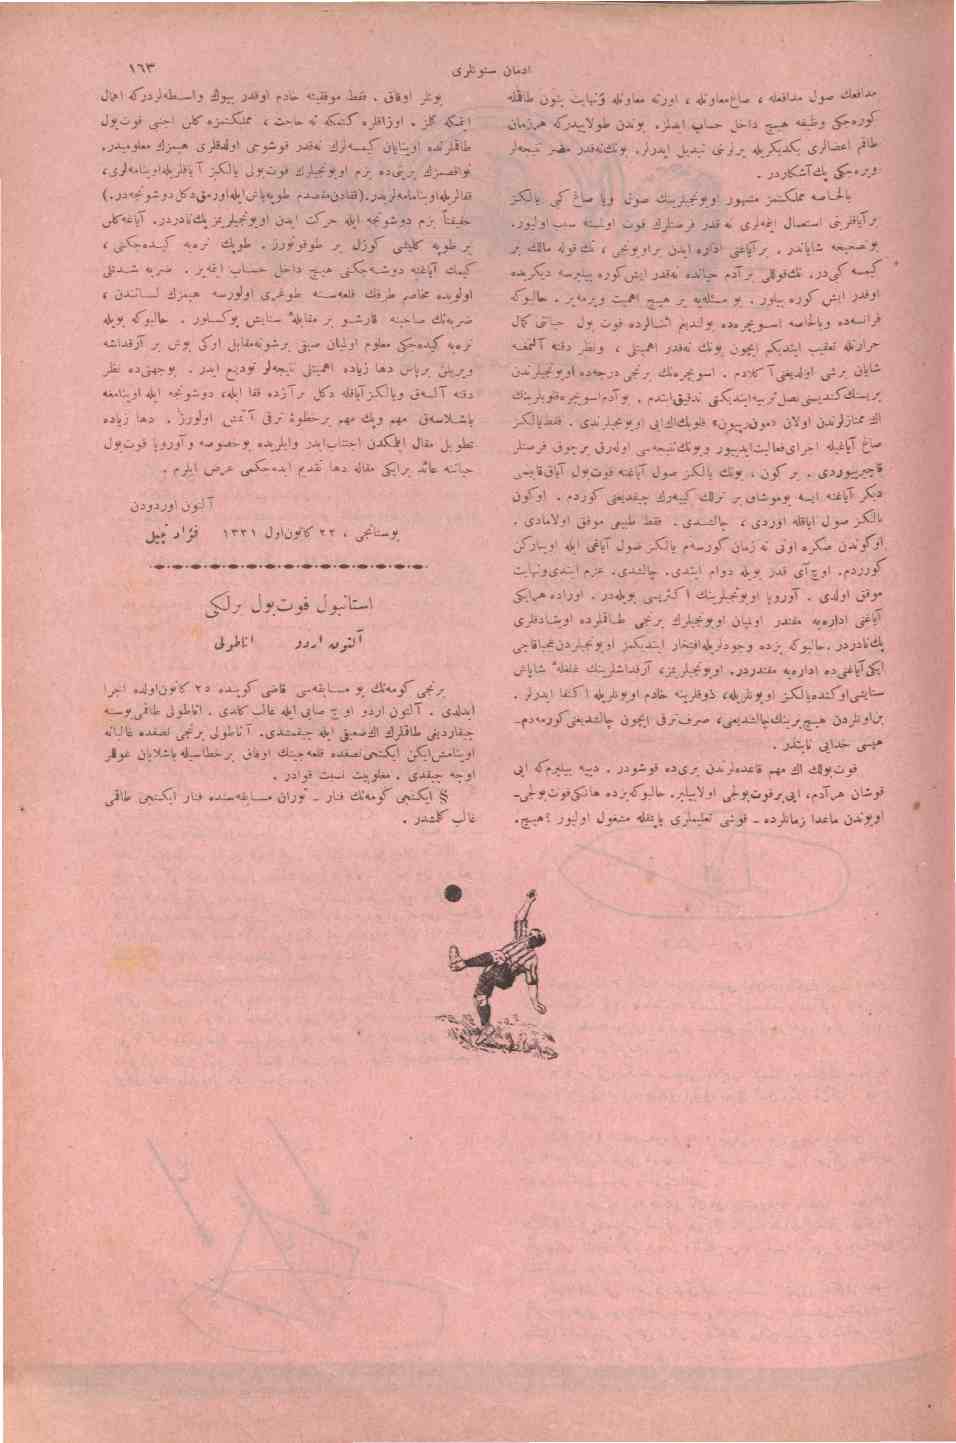 ادمان ستونلری
١٦٣
مدافعك صول مدافعله ، صاغ معاونله ، اورته معاونله ونهایت بتون طاقمله
كوره‌جكی وظیفه هیچ داخل حساب ایدلمز. بوندن طولاییدركه هرزمان
طاقم اعضالری یكدیكریله یرلرینی تبدیل ایدرلر. بونك نه‌قدر مضر نتیجه‌لر
ویره‌جكی پك آشكاردر .
بالخاصه مملكتمز مشهور اویونجیلرینك صول ویا صاغ كبی یالكز
برآیاقلرینی استعمال ایتمه‌لری نه قدر فرصتلرك فوت اولمسنه سبب اولیور.
بو نصیحته شایاندر . برآیاغنی اداره ایدن براویونجی ، تك قوله مالك بر
كیمسه كبی‌در. تك‌قوللی برآدم حیاتده نه‌قدر ایش كوره بیلیرسه دیكریده
اوقدر ایش كوره بیلور . بو مسئله‌یه بز هیچ اهمیت ویرمه‌یز . حالبوكه
فرانسه‌ده وبالخاصه اسویچره‌ده بولندیغم اثنالرده فوت بول حیاتنی كمال
حرارتله تعقیب ایتدیكم ایچون بونك نه‌قدر اهمیتلی ، ونظر دقته آلنمغه
شایان برشی اولدیغنی آكلادم . اسویچره‌نك برنجی درجه‌ده اویونجیلرندن
بریسنك كندیسنی نصل تربیه ایتدیكنی تدقیق ایتدم . بوآدم اسویچره قلوبلرینك
اك ممتازلرندن اولان «مون‌ریپون» قلوبنك اك ایی اویونجیلرندی . فقط یالكز
صاغ آیاغیله اجرای فعالیت ایدییور وبونك نتیجه‌سی اوله‌رق برچوق فرصتلر
قاچیرییوردی . بر كون ، بونك یالكز صول آیاغنه فوت‌بول آیاق‌قابیسی
دیكر آیاغنه ایسه یوموشاق بر ترلك كییه‌رك چیقدیغنی كوردم . اوكون
یالكز صول ایاقله اوردی ، چالیشدی . فقط طبیعی موفق اولامادی .
اوكوندن صكره اونی نه زمان كورسه‌م یالكز صول آیاغی ایله اوینارکن
كوردم. اوچ آی قدر بویله دوام ایتدی. چالیشدی. عزم ایتدی ونهایت
موفق اولدی . آوروپا اویونجیلرینك اكثریسی بویله‌در . اوراده هرایكی
آیاغنی اداره‌یه مقتدر اولمیان اویونجیلرك برنجی طاقملرده اوینادقلری
پك نادردر .حالبوكه بزده وجودلریله افتخار ایتدیكمز اویونجیلردن عجبا قاچی
ایكی آیاغنی‌ده اداره‌یه مقتدردر. اویونجیلریمز، آرقداشلرینك غلغلهٔ شاباش
ستایشی اوكنده یالكز اویونلریله، ذوقلرینه خادم اویونلریله اكتفا ایدرلر .
بن اونلردن هیچ برینك چالیشدیغنی، صرف ترقی ایچون چالیشدیغنی كورمه‌دم ــ
هپسی خدایی نابتدر .
فوت‌بولك اك مهم قاعده‌لرندن بری‌ده قوشودر . دییه بیلیرم‌كه ایی
قوشان هرآدم، ایی برفوت‌بولجی اولابیلیر. حالبوكه بزده هانكی فوت بولجی ــ
اویوندن ماعدا زمانلرده ــ قوشی تعلیملری یاپمقله مشغول اولیور ؟ هیچ.
بونلر اوفاق . فقط موفقیته خادم اوقدر بیوك واسطه‌لردركه اهمال
ایتمكه كلز . اوزاقلره كتمكه نه حاجت ، مملكتمزه كلن اجنبی فوت‌بول
طاقملرنده اوینایان كیمسه‌لرك نه‌قدر قوشوجی اولدقلری هپمزك معلومیدر.
نواقصمزك برینی‌ده بزم اویونجیلرك فوت‌بولی یالكز آیاقلریله اوینامه‌لری،
قفالریله اوینامامه‌لریدر.(قفادن مقصدم طوپه باش ایله اورمق دكل دوشونجه‌در.)
حقیقةً بزم دوشونجه ایله حركت ایدن اویونجیلریمز پك نادردر. آیاغه كلن
بر طوپه كلیشی كوزل بر طوقونورز. طوپك نره‌یه كیده‌جكنی ،
كیمك آیاغنه دوشه‌جكنی هیچ داخل حساب ایتمه‌یز . ضربه شدتلی
اولوبده مخاصم طرفك قلعه‌سنه طوغری اولورسه هپمزك لساننندن ،
ضربه‌نك صاحبنه قارشو بر مقابلهٔ ستایش یوكسلور . حالبوكه بویله
نره‌یه كیده‌جكی معلوم اولمیان صیقی برشوته مقابل اركی بوش بر آرقداشه
ویریلن برپاس دها زیاده اهمیتلی نتیجه‌لر تودیع ایدر . بوجهتی‌ده نظر
دقته آلسه‌ق ویالكز آیاقله دكل برآزده قفا ایله، دوشونجه ایله اوینامغه
باشلاسه‌ق مهم وپك مهم برخطوهٔ ترقی آتمش اولورز . دها زیاده
تطویل مقال ایتمكدن اجتناب ایدر وایلریده بوخصوصه وآوروپا فوت‌بول
حیاتنه عائد برایكی مقاله دها تقدیم ایده‌جكمی عرض ایلرم .
آلتون اوردودن
بوستانجی ، ٢٢ كانون‌اول ١٣٣١
استانبول فوت‌بول برلكی
آلتون اردو اناطولی
برنجی كومه‌نك بو مسابقه‌سی قاضی كوینده ٢٥ كانون‌اولده اجرا
ایدلدی . آلتون اردو اوچ صایی ایله غالب كلدی . اناطولی طاقمی بوسنه
چیقاردیغی طاقملرك اك ضعیفی ایله چیقمشدی. آناطولی برنجی نصفده غالبانه
اوینامش ایكن ایكنجی نصفده قلعه‌جینك اوفاق برخطاسیله باشلایان غوللر
اوچه چیقدی . مغلوبیت نسبت قوادر .
§ ایكنجی كومه‌نك فنار ــ توران مسابقه‌سنده فنار ایكنجی طاقمی
غالب كلمشدر .